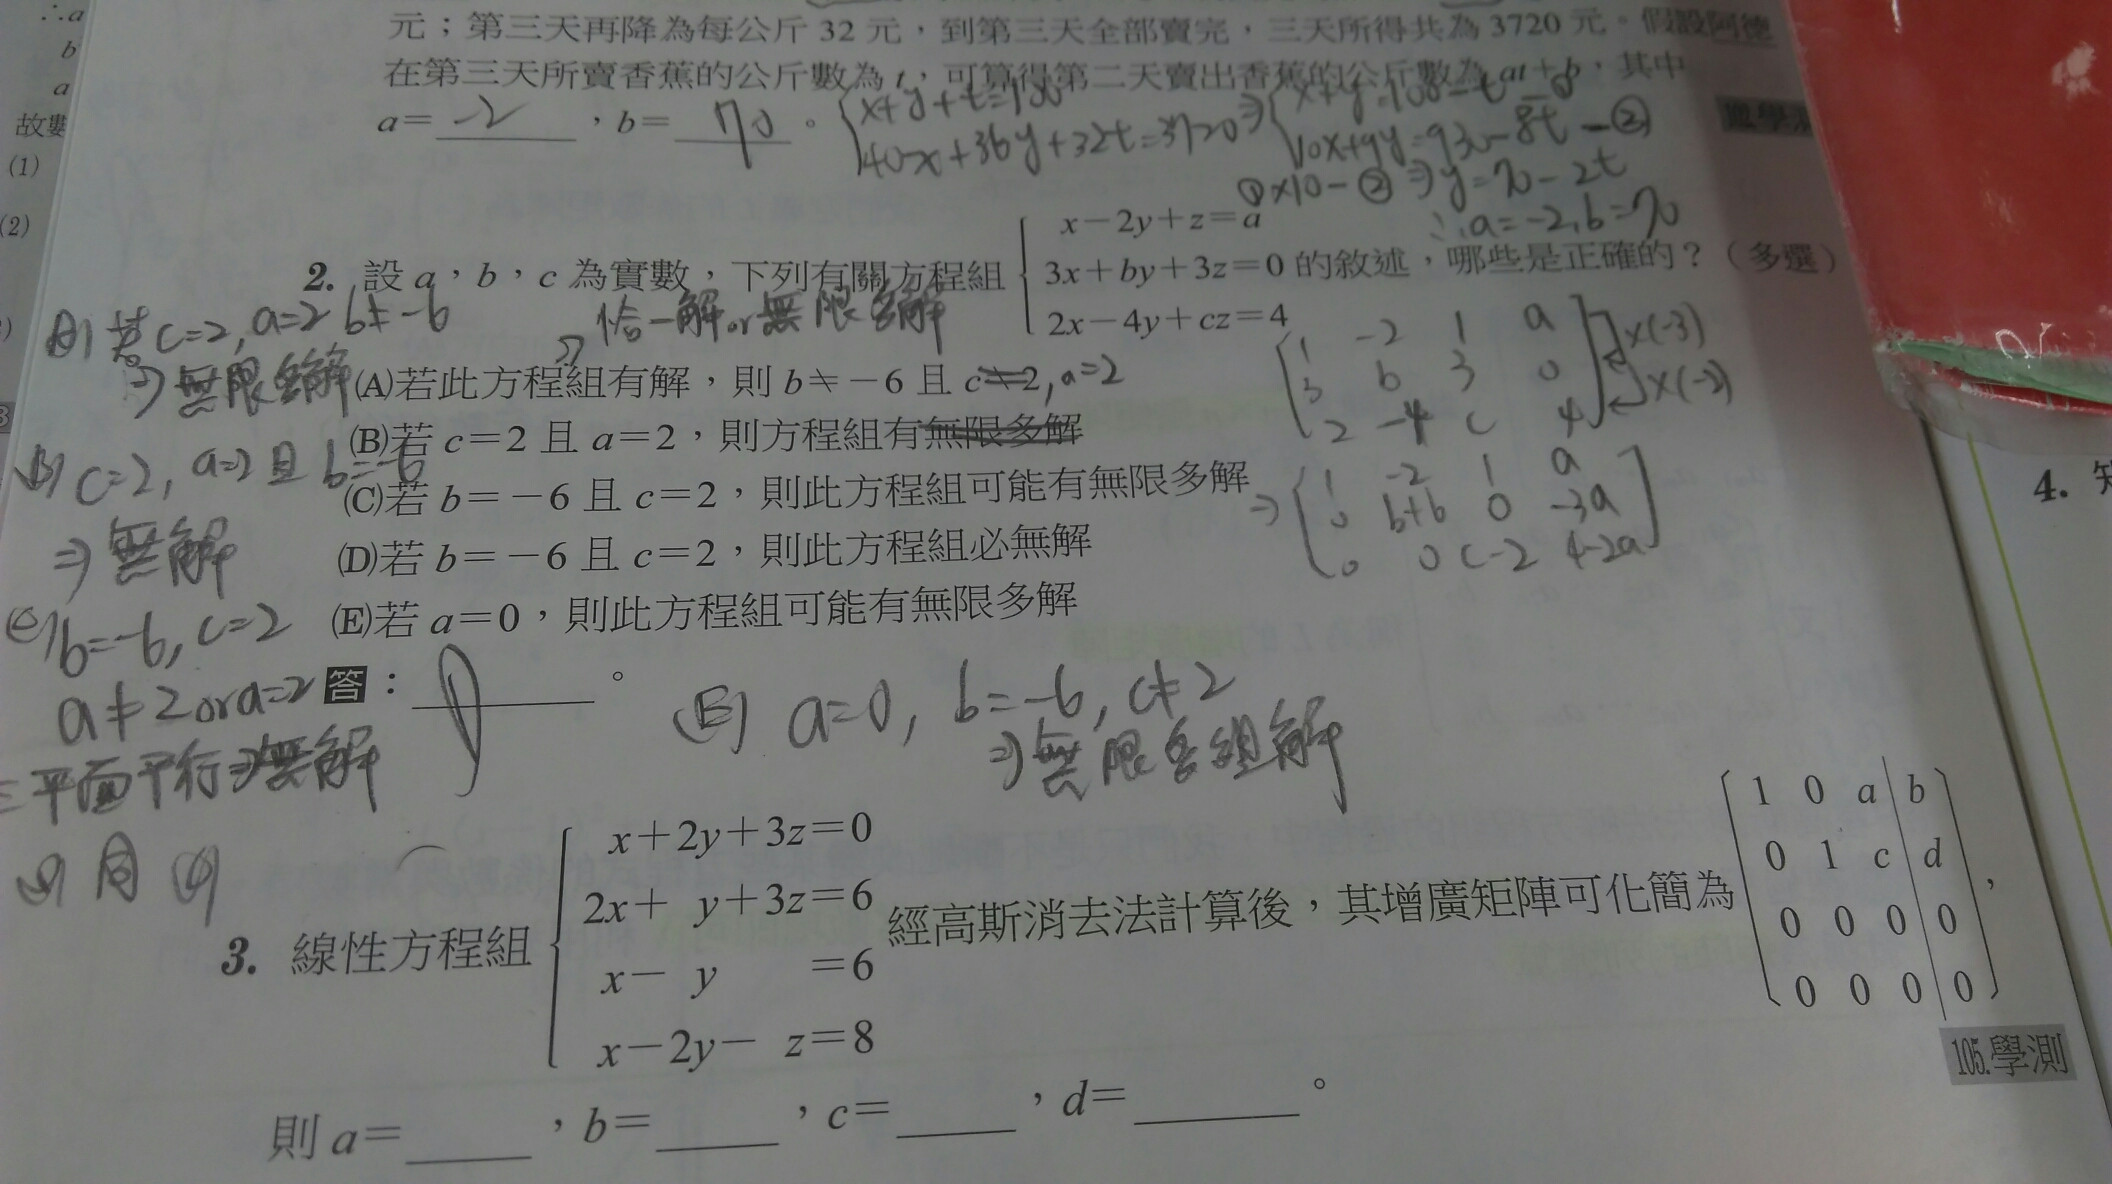 ∴a
b
a
故數
(1)
(2)
元；第三天再降為每公斤 32 元，到第三天全部賣完，三天所得共為 3720 元。假設阿德
在第三天所賣香蕉的公斤數為 t，可算得第二天賣出香蕉的公斤數為 at+b，其中
a= -2 ，b= 70 。
x+y+t=100
40x+36y+32t=3720
⇒
x+y=100-t
10x+9y=930-8t -②
①×10-②⇒y=70-2t
∴a=-2, b=70
2. 設 a，b，c 為實數，下列有關方程組
x-2y+z=a
3x+by+3z=0
2x-4y+cz=4
的敘述，哪些是正確的？（多選）
⇒恰一解or無限多解
(A)若此方程組有解，則 b≠-6 且 c≠2, a=2
(B)若 c=2 且 a=2，則方程組有無限多解
(C)若 b=-6 且 c=2，則此方程組可能有無限多解
(D)若 b=-6 且 c=2，則此方程組必無解
(E)若 a=0，則此方程組可能有無限多解
答： D 。
(A) 若c=2, a=2 b≠-6
⇒無限多解
(B) c=2, a=2 且 b=-6
⇒無解
(C) b=-6, c=2
a≠2 or a=2
三平面平行⇒無解
(D) 同
(E) a=0, b=-6, c≠2
⇒無限多組解
1 -2 1 a
3 b 3 0
2 -4 c 4
×(-3)
×(-2)
⇒
1 -2 1 a
0 b+6 0 -3a
0 0 c-2 4-2a
3. 線性方程組
x+2y+3z=0
2x+ y+3z=6
x- y =6
x-2y- z=8
經高斯消去法計算後，其增廣矩陣可化簡為
1 0 a b
0 1 c d
0 0 0 0
0 0 0 0
，
105.學測
則 a=____，b=____，c=____，d=____。
4.